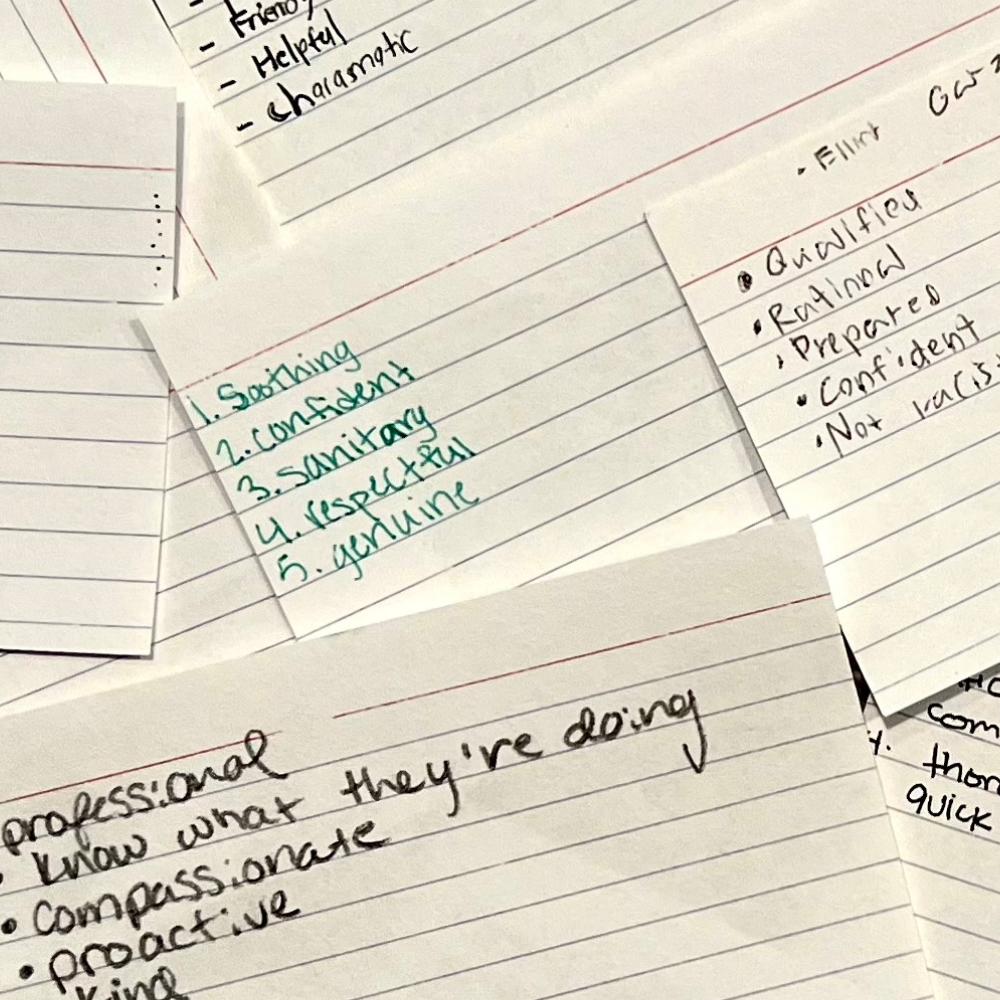 - Friendly
- Helpful
- Charasmatic
1. Soothing
2. confident
3. sanitary
4. respectful
5. genuine
• Qualified
• Rational
• Prepared
• Confident
• Not racis
professional
• know what they're doing
• compassionate
• proactive
kind
com
4. thor
quick